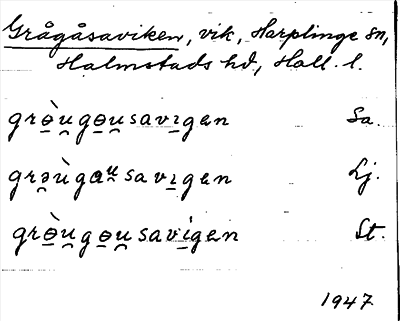 Grågåsaviken, vik, Harplinge sn,
Halmstads hd, Hall. l.
grɵ̱̀u̯gɵ̱u̯savı̱gen Sa.
grə̯ùgaᵘ̯savı̱gen Lj.
grɵ̱̀u̯gɵ̱u̯savi̱gen St.
1947